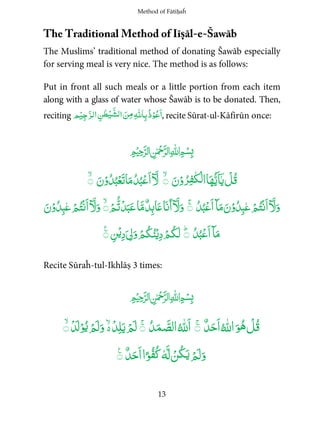 Method of Fātiḥaĥ
The Traditional Method of Iiṣāl-e-Šawāb
The Muslims' traditional method of donating Šawāb especially
for serving meal is very nice. The method is as follows:
Put in front all such meals or a little portion from each item
along with a glass of water whose Šawāb is to be donated. Then,
reciting اَعُوْذُ بِاللهِ مِنَ الشَّيْطٰنِ الرَّجِيْم, recite Sūrat-ul-Kāfirūn once:
بِسْمِ اللهِ الرَّحْمٰنِ الرَّحِيْمِ
قُلْ يٰۤاَيُّهَا الْكٰفِرُوْنَ ۙ لَاۤ اَعْبُدُ مَا تَعْبُدُوْنَ ۙ
وَلَاۤ اَنْتُمْ عٰبِدُوْنَ مَاۤ اَعْبُدُ ۚ وَلَاۤ اَنَا عَابِدٌ مَّا عَبَدْتُّمْ ۙ وَلَاۤ اَنْتُمْ عٰبِدُوْنَ
مَاۤ اَعْبُدُ ؕ لَكُمْ دِيْنُكُمْ وَلِيَ دِيْنِ ۚ
Recite Sūraĥ-tul-Ikhlāṣ 3 times:
بِسْمِ اللهِ الرَّحْمٰنِ الرَّحِيْمِ
قُلْ هُوَ اللهُ اَحَدٌ ۚ اَللهُ الصَّمَدُ ۚ لَمْ يَلِدْ ۙ وَلَمْ يُوْلَدْ ۙ
وَلَمْ يَكُنْ لَّهٗ كُفُوًا اَحَدٌ ۚ
13